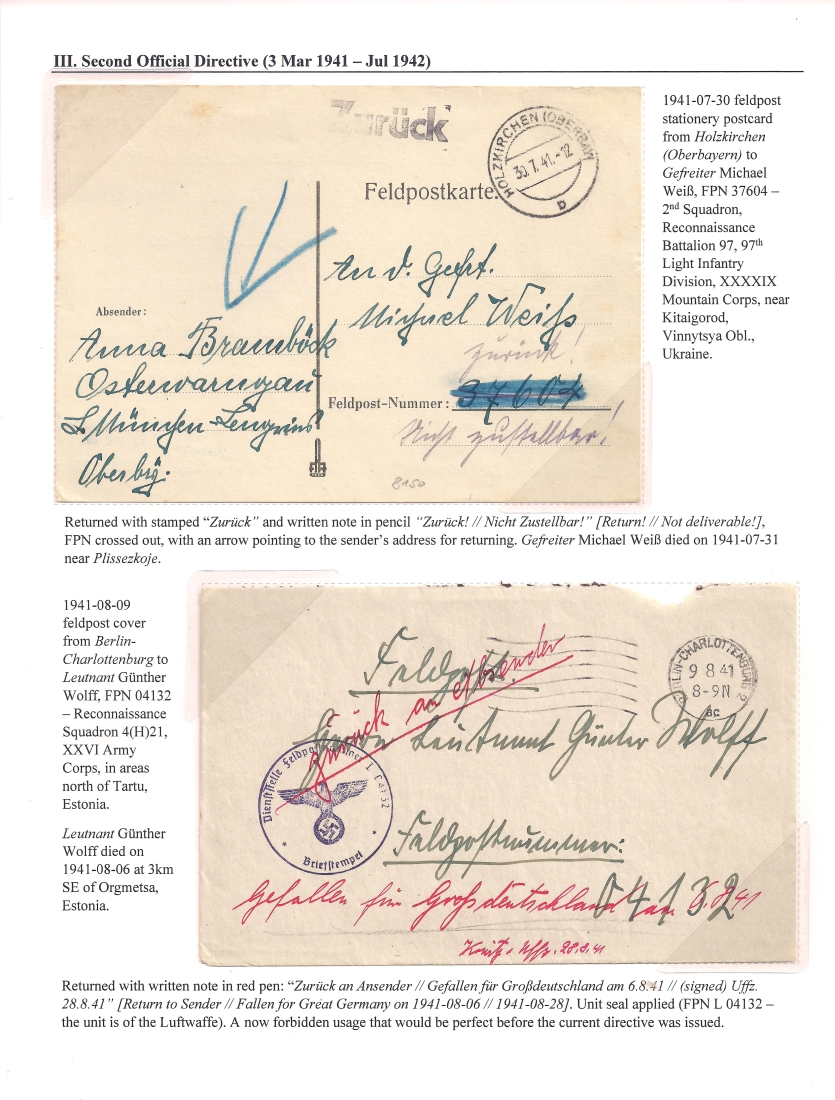 III. Second Official Directive (3 Mar 1941 – Jul 1942)
Zurück
HOLZKIRCHEN (OBERBAY)
30.7.41.-12
b
Feldpostkarte.
An d. Gefrt.
Michael Weiß
zurück!
Feldpost-Nummer: 37604
Nicht zustellbar!
8150
Absender:
Anna Bramböck
Osterwarngau
Oberbay.
1941-07-30 feldpost
stationery postcard
from Holzkirchen
(Oberbayern) to
Gefreiter Michael
Weiß, FPN 37604 –
2nd Squadron,
Reconnaissance
Battalion 97, 97th
Light Infantry
Division, XXXXIX
Mountain Corps, near
Kitaigorod,
Vinnytsya Obl.,
Ukraine.
Returned with stamped “Zurück” and written note in pencil “Zurück! // Nicht Zustellbar!” [Return! // Not deliverable!],
FPN crossed out, with an arrow pointing to the sender’s address for returning. Gefreiter Michael Weiß died on 1941-07-31
near Plissezkoje.
1941-08-09
feldpost cover
from Berlin-
Charlottenburg to
Leutnant Günther
Wolff, FPN 04132
– Reconnaissance
Squadron 4(H)21,
XXVI Army
Corps, in areas
north of Tartu,
Estonia.
Leutnant Günther
Wolff died on
1941-08-06 at 3km
SE of Orgmetsa,
Estonia.
BERLIN-CHARLOTTENBURG 2
9 8 41
8-9N
ac
Feldpost.
Zurück an Absender
Herrn Leutnant Günter Wolff
Dienststelle Feldpostnummer L 04132
Briefstempel
Feldpostnummer:
04132
Gefallen für Großdeutschland am 6.8.41
Uffz. 28.8.41
Returned with written note in red pen: “Zurück an Ansender // Gefallen für Großdeutschland am 6.8.41 // (signed) Uffz.
28.8.41” [Return to Sender // Fallen for Great Germany on 1941-08-06 // 1941-08-28]. Unit seal applied (FPN L 04132 –
the unit is of the Luftwaffe). A now forbidden usage that would be perfect before the current directive was issued.